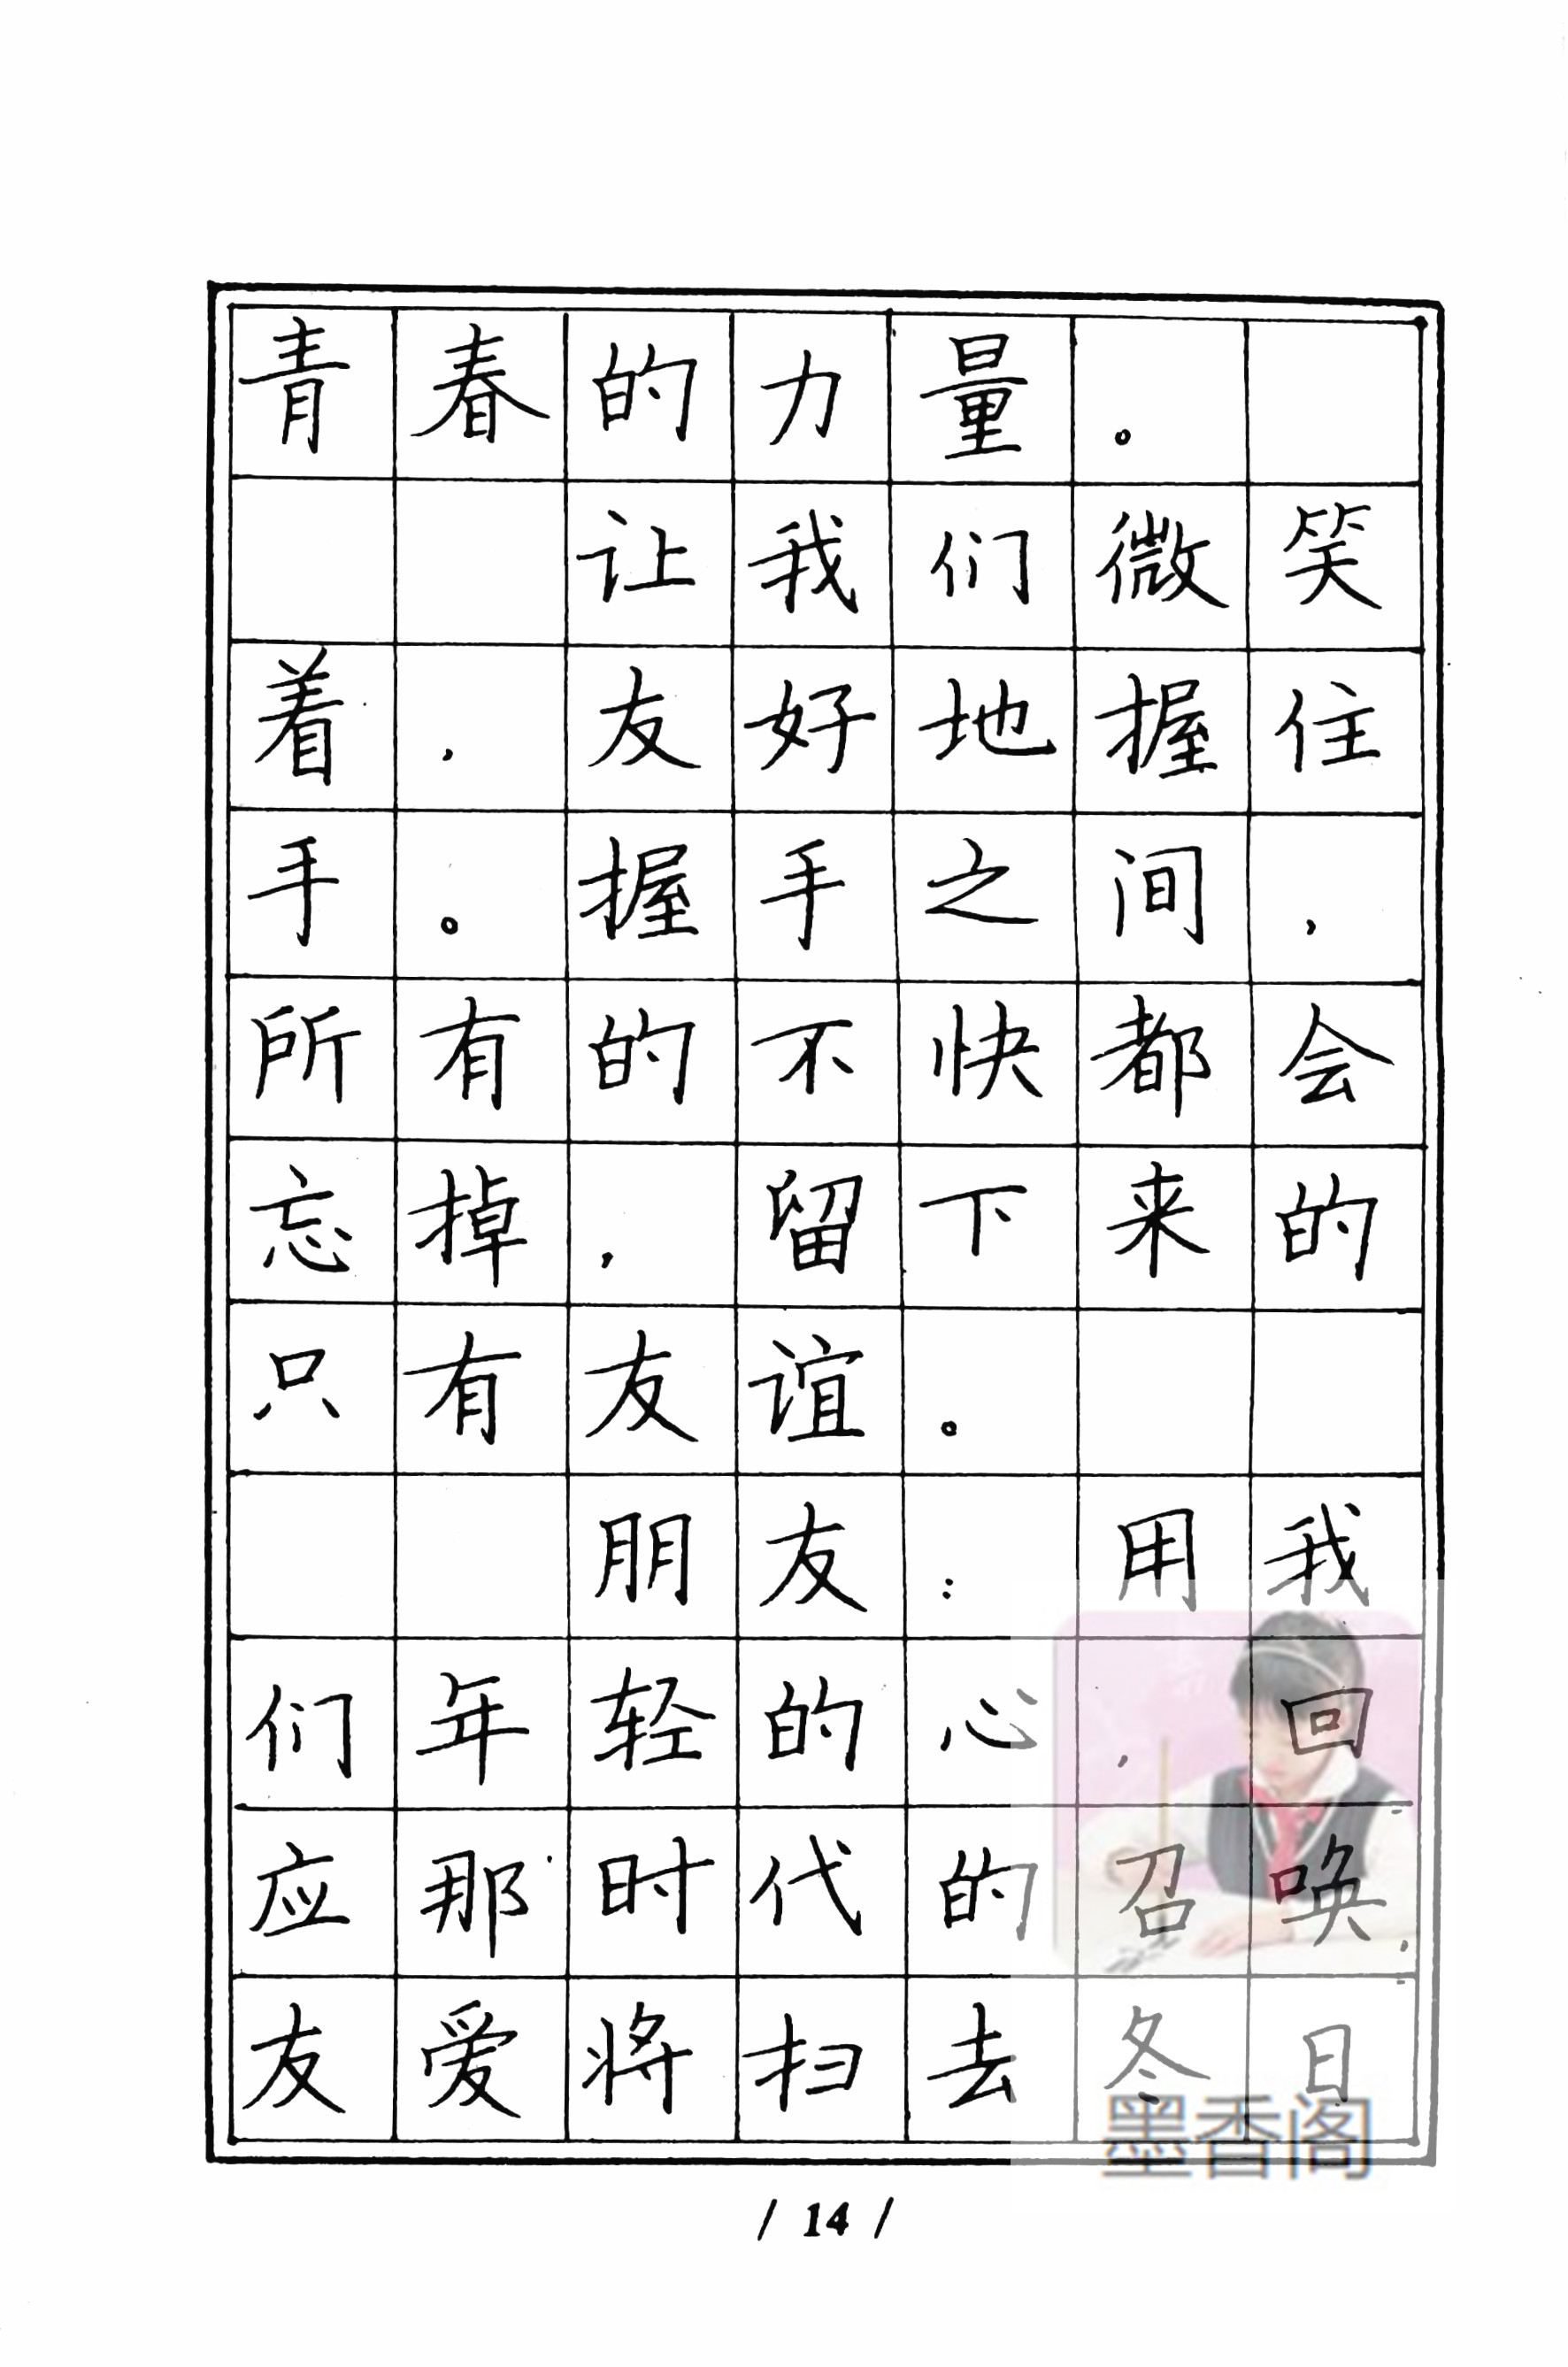 青春的力量。
让我们微笑
着，友好地握住
手。握手之间，
所有的不快都会
忘掉，留下来的
只有友谊。
朋友：用我
们年轻的心，回
应那时代的召唤，
友爱将扫去冬日
墨香阁
/ 14 /